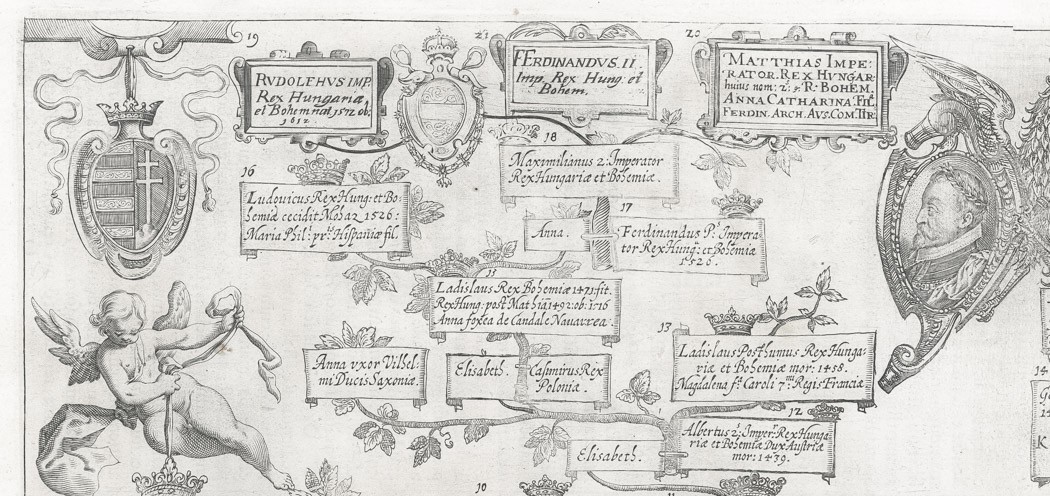 19
RVDOLFHVS IMP.
Rex Hungariæ
et Bohem nat 1572 ob:
1612.
21
FERDINANDVS. II.
Imp. Rex Hung: et
Bohem.
20
MATTHIAS IMPE:
RATOR. REX HVNGAR:
huius nom: 2: R: BOHEM.
ANNA CATHARINA. Fil.
FERDIN. ARCH. AVS. COM. TIR.
18
Maximilianus 2: Imperator
Rex Hungariæ et Bohemiæ.
16
Ludovicus Rex Hung: et Bo-
hemiæ cecidit Mohaz 1526:
Maria Phil: pri: Hispaniæ fil.
Anna.
17
Ferdinandus P.: Impera-
tor Rex Hung: et Bohemiæ
1526.
15
Ladislaus Rex Bohemiæ 1471: fit.
Rex Hung: post Mathiā 1492: ob: 1516
Anna foxea de Candale Nauarrea.
13
Ladislaus Posthumus Rex Hunga-
riæ et Bohemiæ mor: 1458.
Magdalena f: Caroli 7mi Regis Franciæ
Anna vxor Vilhel-
mi Ducis Saxoniæ.
Elisabeth.
Casimirus Rex
Poloniæ.
12
Albertus 2: Imper: Rex Hunga-
riæ et Bohemiæ Dux Austriæ
mor: 1439.
Elisabeth.
14
K
10
11